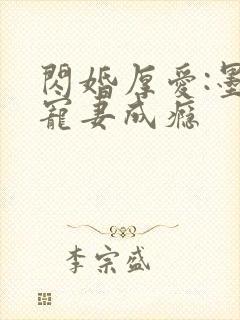 閃婚厚愛:墨
寵妻成瘾
李宗盛